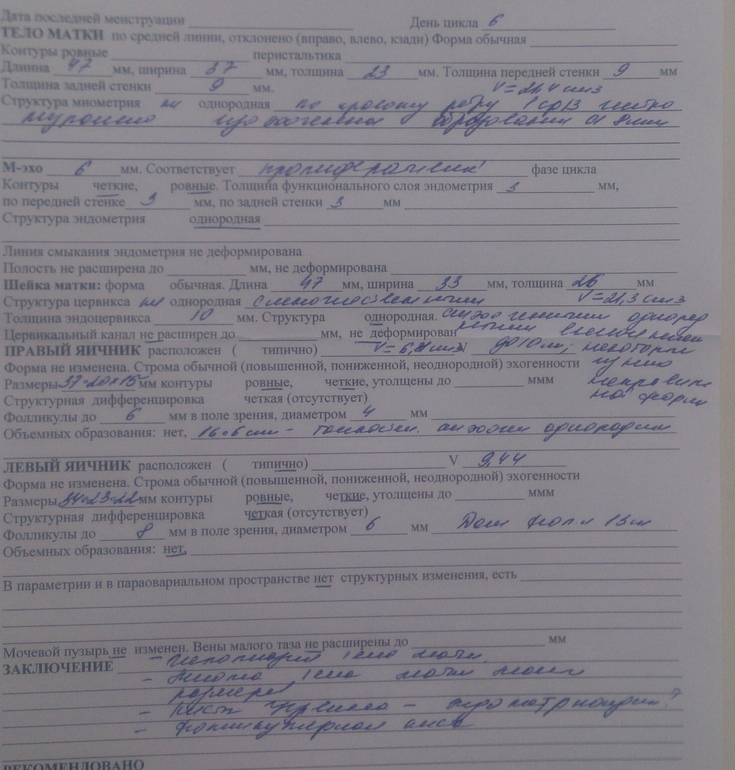 Дата последней менструации День цикла 6
ТЕЛО МАТКИ по средней линии, отклонено (вправо, влево, кзади) Форма обычная
Контуры ровные перистальтика
Длинна 47 мм, ширина 37 мм, толщина 23 мм. Толщина передней стенки 9 мм
Толщина задней стенки 9 мм. V = 21,4 см3
Структура миометрия не однородная по правому ребру
образования d 8мм
М-эхо 6 мм. Соответствует фазе цикла
Контуры четкие, ровные. Толщина функционального слоя эндометрия 3 мм,
по передней стенке 3 мм, по задней стенке 3 мм
Структура эндометрия однородная
Линия смыкания эндометрия не деформирована
Полость не расширена до мм, не деформирована
Шейка матки: форма обычная. Длина 47 мм, ширина 33 мм, толщина 26 мм
Структура цервикса не однородная V = 21,3 см3
Толщина эндоцервикса 10 мм. Структура однородная.
Цервикальный канал не расширен до мм, не деформирован
ПРАВЫЙ ЯИЧНИК расположен ( типично) V до 10 мм, некоторые
Форма не изменена. Строма обычной (повышенной, пониженной, неоднородной) эхогенности из них
Размеры 37×20×15 мм контуры ровные, четкие, утолщены до ммм неправильн
Структурная дифференцировка четкая (отсутствует) ной формы
Фолликулы до 6 мм в поле зрения, диаметром 4 мм
Объемных образования: нет, 16×6 мм -
ЛЕВЫЙ ЯИЧНИК расположен ( типично) V 9,44
Форма не изменена. Строма обычной (повышенной, пониженной, неоднородной) эхогенности
Размеры 34×23×22 мм контуры ровные, четкие, утолщены до ммм
Структурная дифференцировка четкая (отсутствует)
Фолликулы до 8 мм в поле зрения, диаметром 6 мм Дом фолл 13мм
Объемных образования: нет,
В параметрии и в параовариальном пространстве нет структурных изменения, есть
Мочевой пузырь не изменен. Вены малого таза не расширены до мм
ЗАКЛЮЧЕНИЕ - Гипоплазия тела матки
- Миома тела матки малых
размеров
-
- Фолликулярная киста
РЕКОМЕНДОВАНО